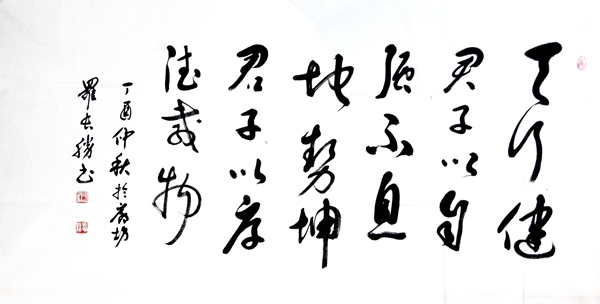 天行健
君子以自
强不息
地勢坤
君子以厚
德載物
丁酉仲秋於坊
羅長勝书